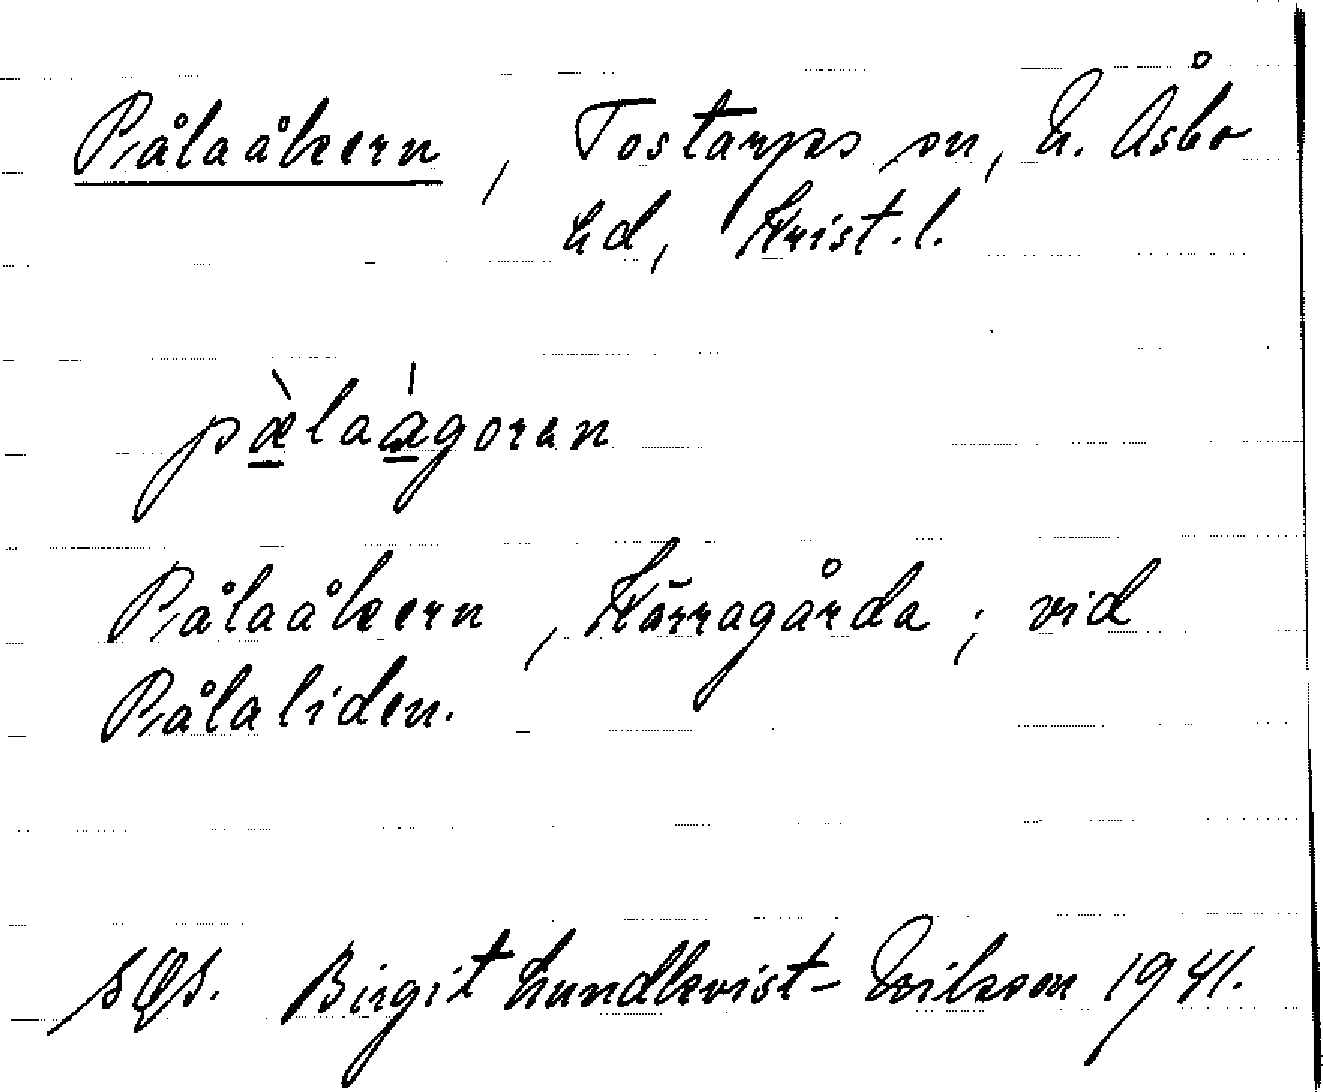 Pålaåkern, Tostarps sn, N. Åsbo
hd, Krist. l.
pàlaágoran
Pålaåkern, Kärragårda; vid
Pålaliden.
Birgit Lundkvist-Nilsson 1941.